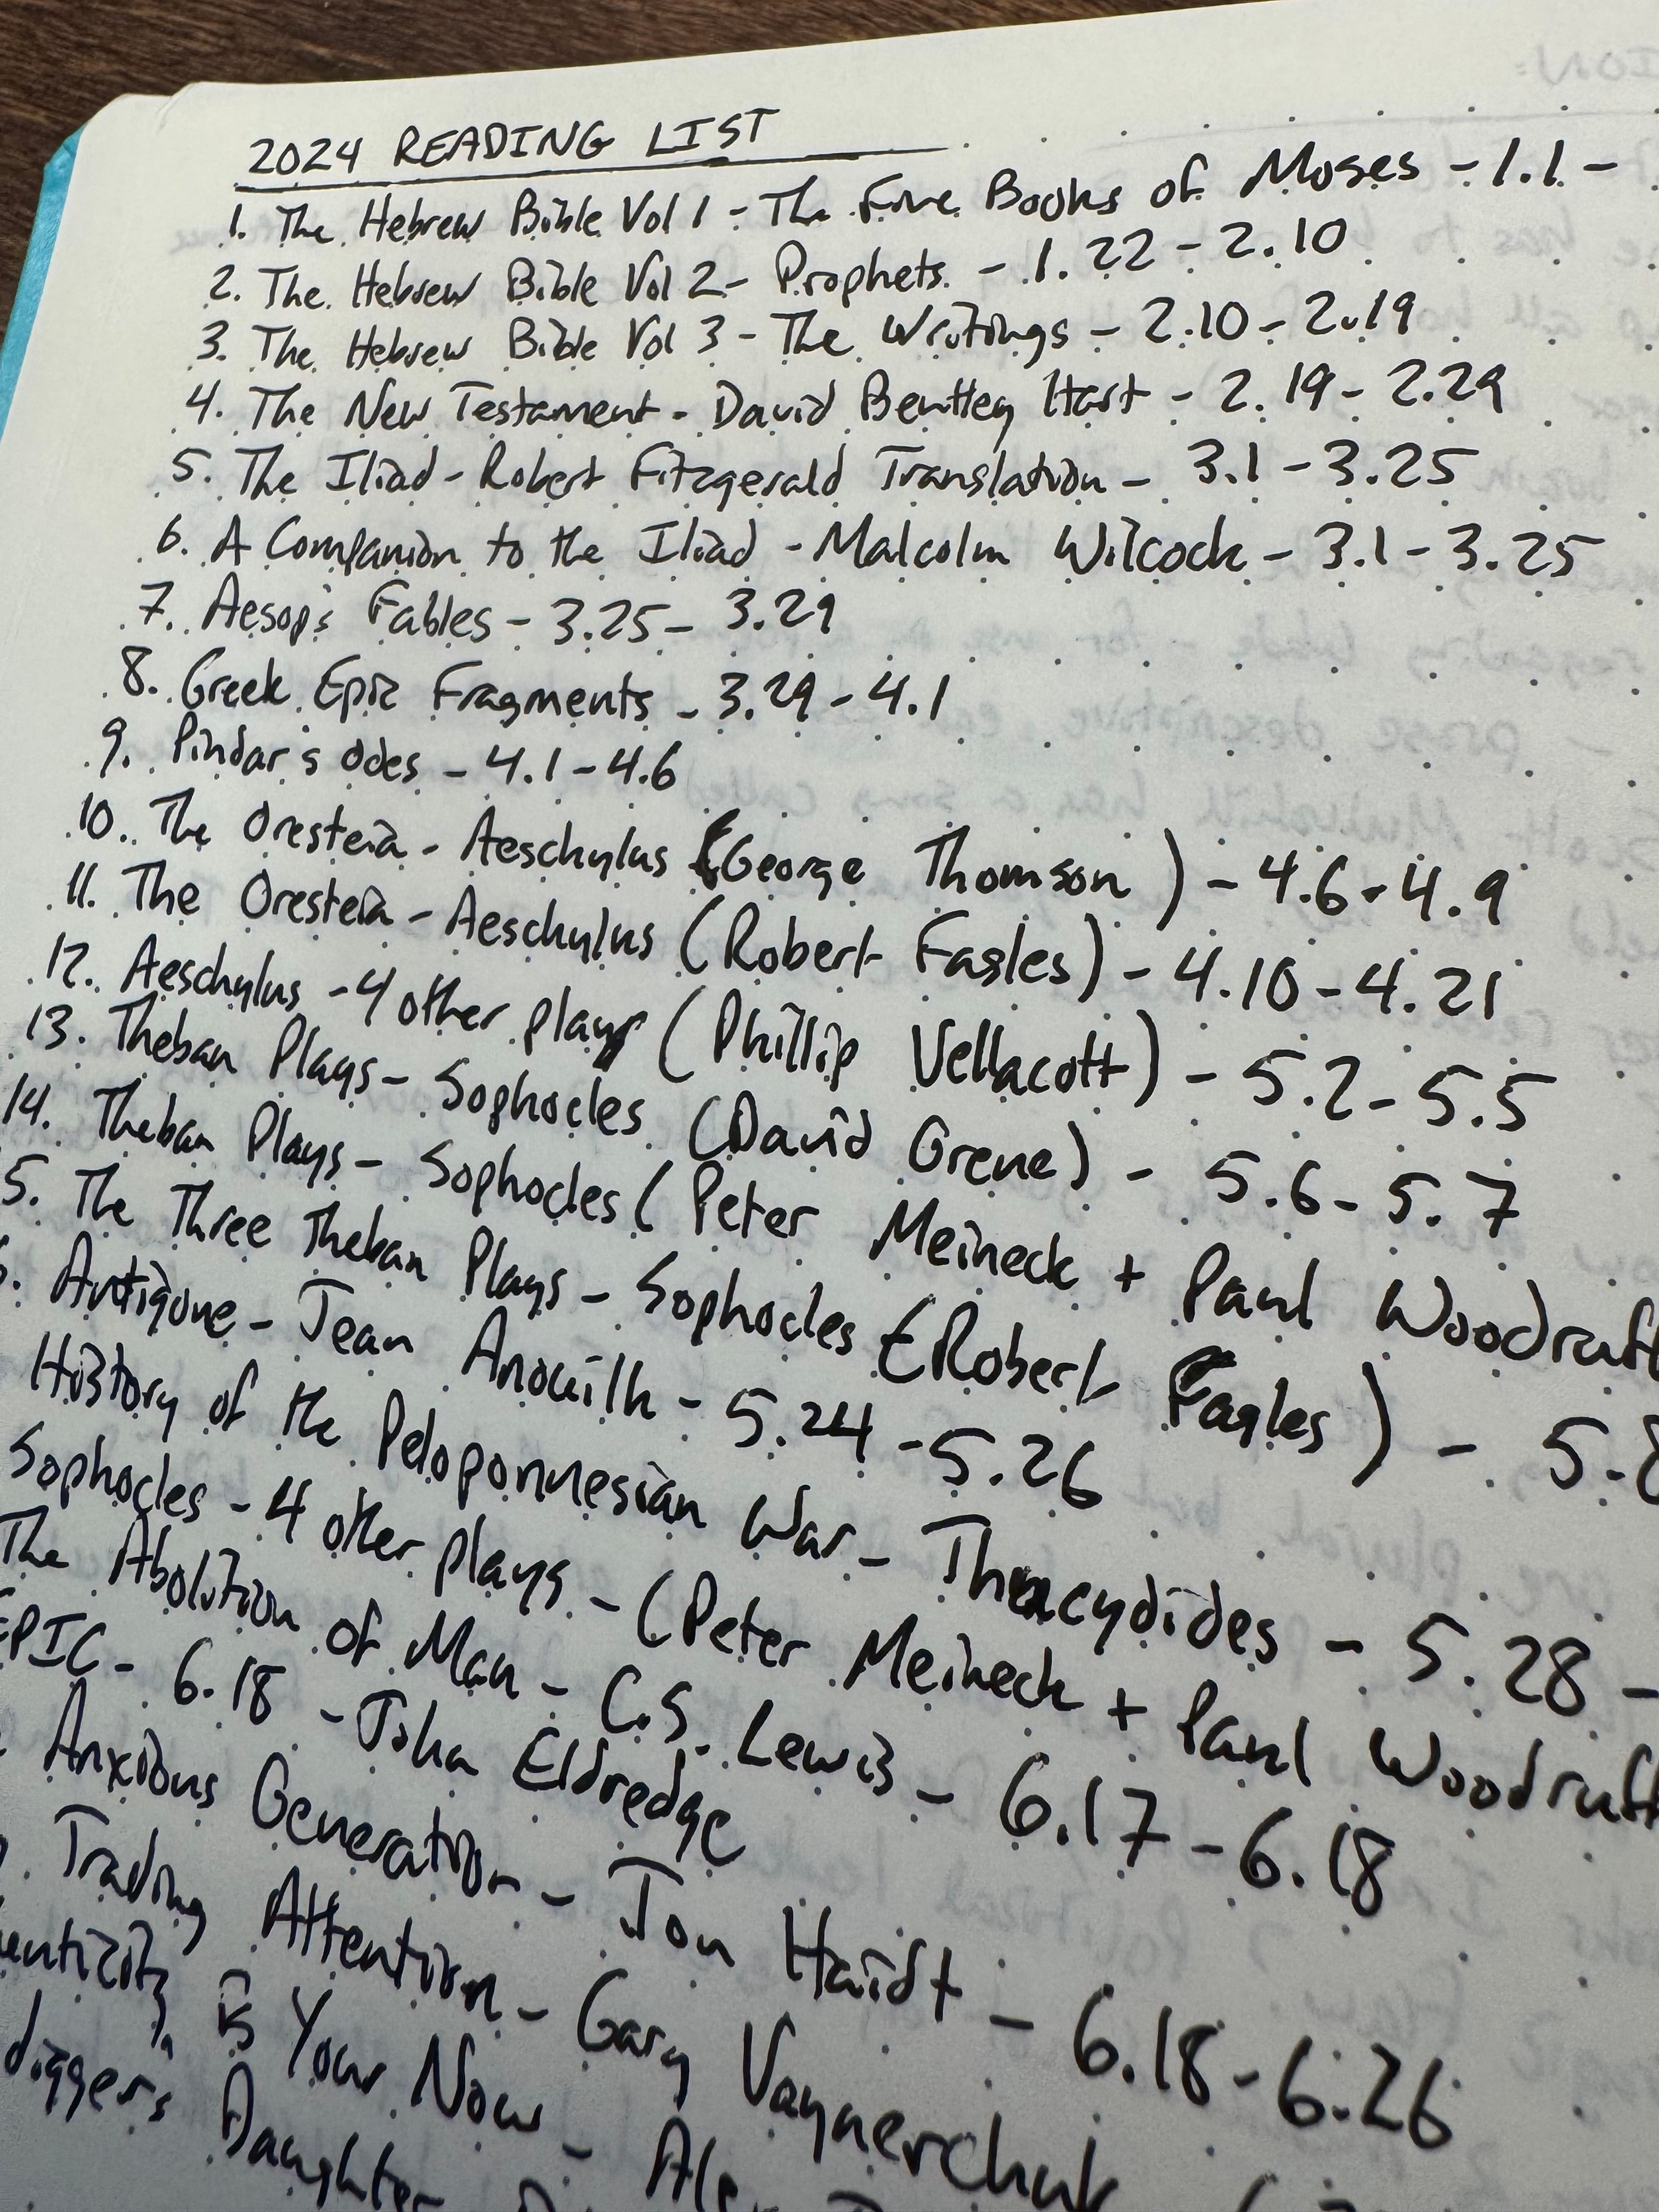 2024 READING LIST
1. The Hebrew Bible Vol 1 - The Five Books of Moses - 1.1 -
2. The Hebrew Bible Vol 2 - Prophets - 1.22 - 2.10
3. The Hebrew Bible Vol 3 - The Writings - 2.10 - 2.19
4. The New Testament - David Bentley Hart - 2.19 - 2.29
5. The Iliad - Robert Fitzgerald Translation - 3.1 - 3.25
6. A Companion to the Iliad - Malcolm Wilcock - 3.1 - 3.25
7. Aesop's Fables - 3.25 - 3.29
8. Greek Epic Fragments - 3.29 - 4.1
9. Pindar's Odes - 4.1 - 4.6
10. The Oresteia - Aeschylus (George Thomson) - 4.6 - 4.9
11. The Oresteia - Aeschylus (Robert Fagles) - 4.10 - 4.21
12. Aeschylus - 4 other plays (Phillip Vellacott) - 5.2 - 5.5
13. Theban Plays - Sophocles (David Grene) - 5.6 - 5.7
14. Theban Plays - Sophocles (Peter Meineck + Paul Woodruff
5. The Three Theban Plays - Sophocles (Robert Fagles) - 5.8
Antigone - Jean Anouilh - 5.24 - 5.26
History of the Peloponnesian War - Thucydides - 5.28 -
Sophocles - 4 other plays - (Peter Meineck + Paul Woodruff
The Abolition of Man - C.S. Lewis - 6.17 - 6.18
EPIC - 6.18 - John Eldredge
Anxious Generation - Jon Haidt - 6.18 - 6.26
Trading Attention - Gary Vaynerchuk
is Your Now -
diggers Daughter